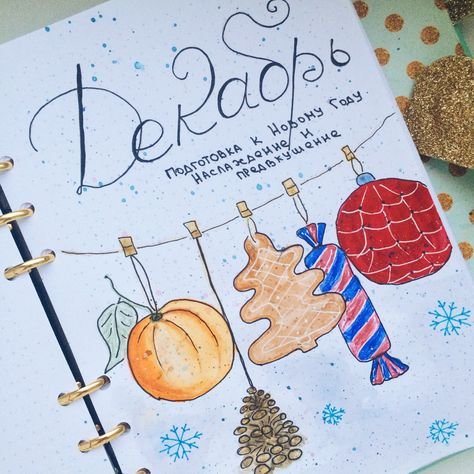 Декабрь
Подготовка к Новому Году
Наслаждение и
предвкушение